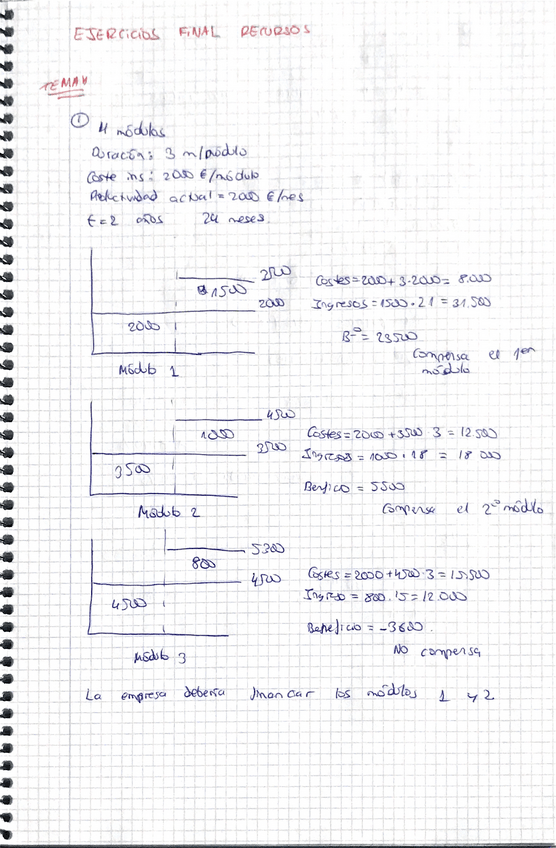 EJERCICIOS FINAL RECURSOS
TEMA 4
① 4 módulos
Duración: 3 m/módulo
Coste ins: 2000 €/módulo
Productividad actual = 2000 €/mes
t = 2 años 24 meses.
2500
1500
2000
2000
Módulo 1
Costes = 2000 + 3·2000 = 8.000
Ingresos = 1500 · 21 = 31.500
Bº = 23500
Compensa el 1er
módulo
4500
1000
3500
3500
Módulo 2
Costes = 2000 + 3500 · 3 = 12.500
Ingresos = 1000 · 18 = 18 000
Benficio = 5500
Compensa el 2º módulo
5300
800
4500
4500
Módulo 3
Costes = 2000 + 4500 · 3 = 15.500
Ingreso = 800 · 15 = 12.000
Beneficio = -3600.
No compensa
La empresa debería financar los módulos 1 y 2